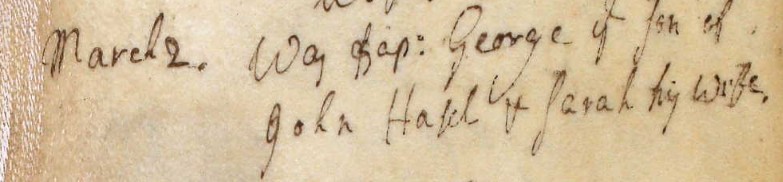 March 2. Was Bap: George yͤ son of
John Hasel & Sarah his wife.